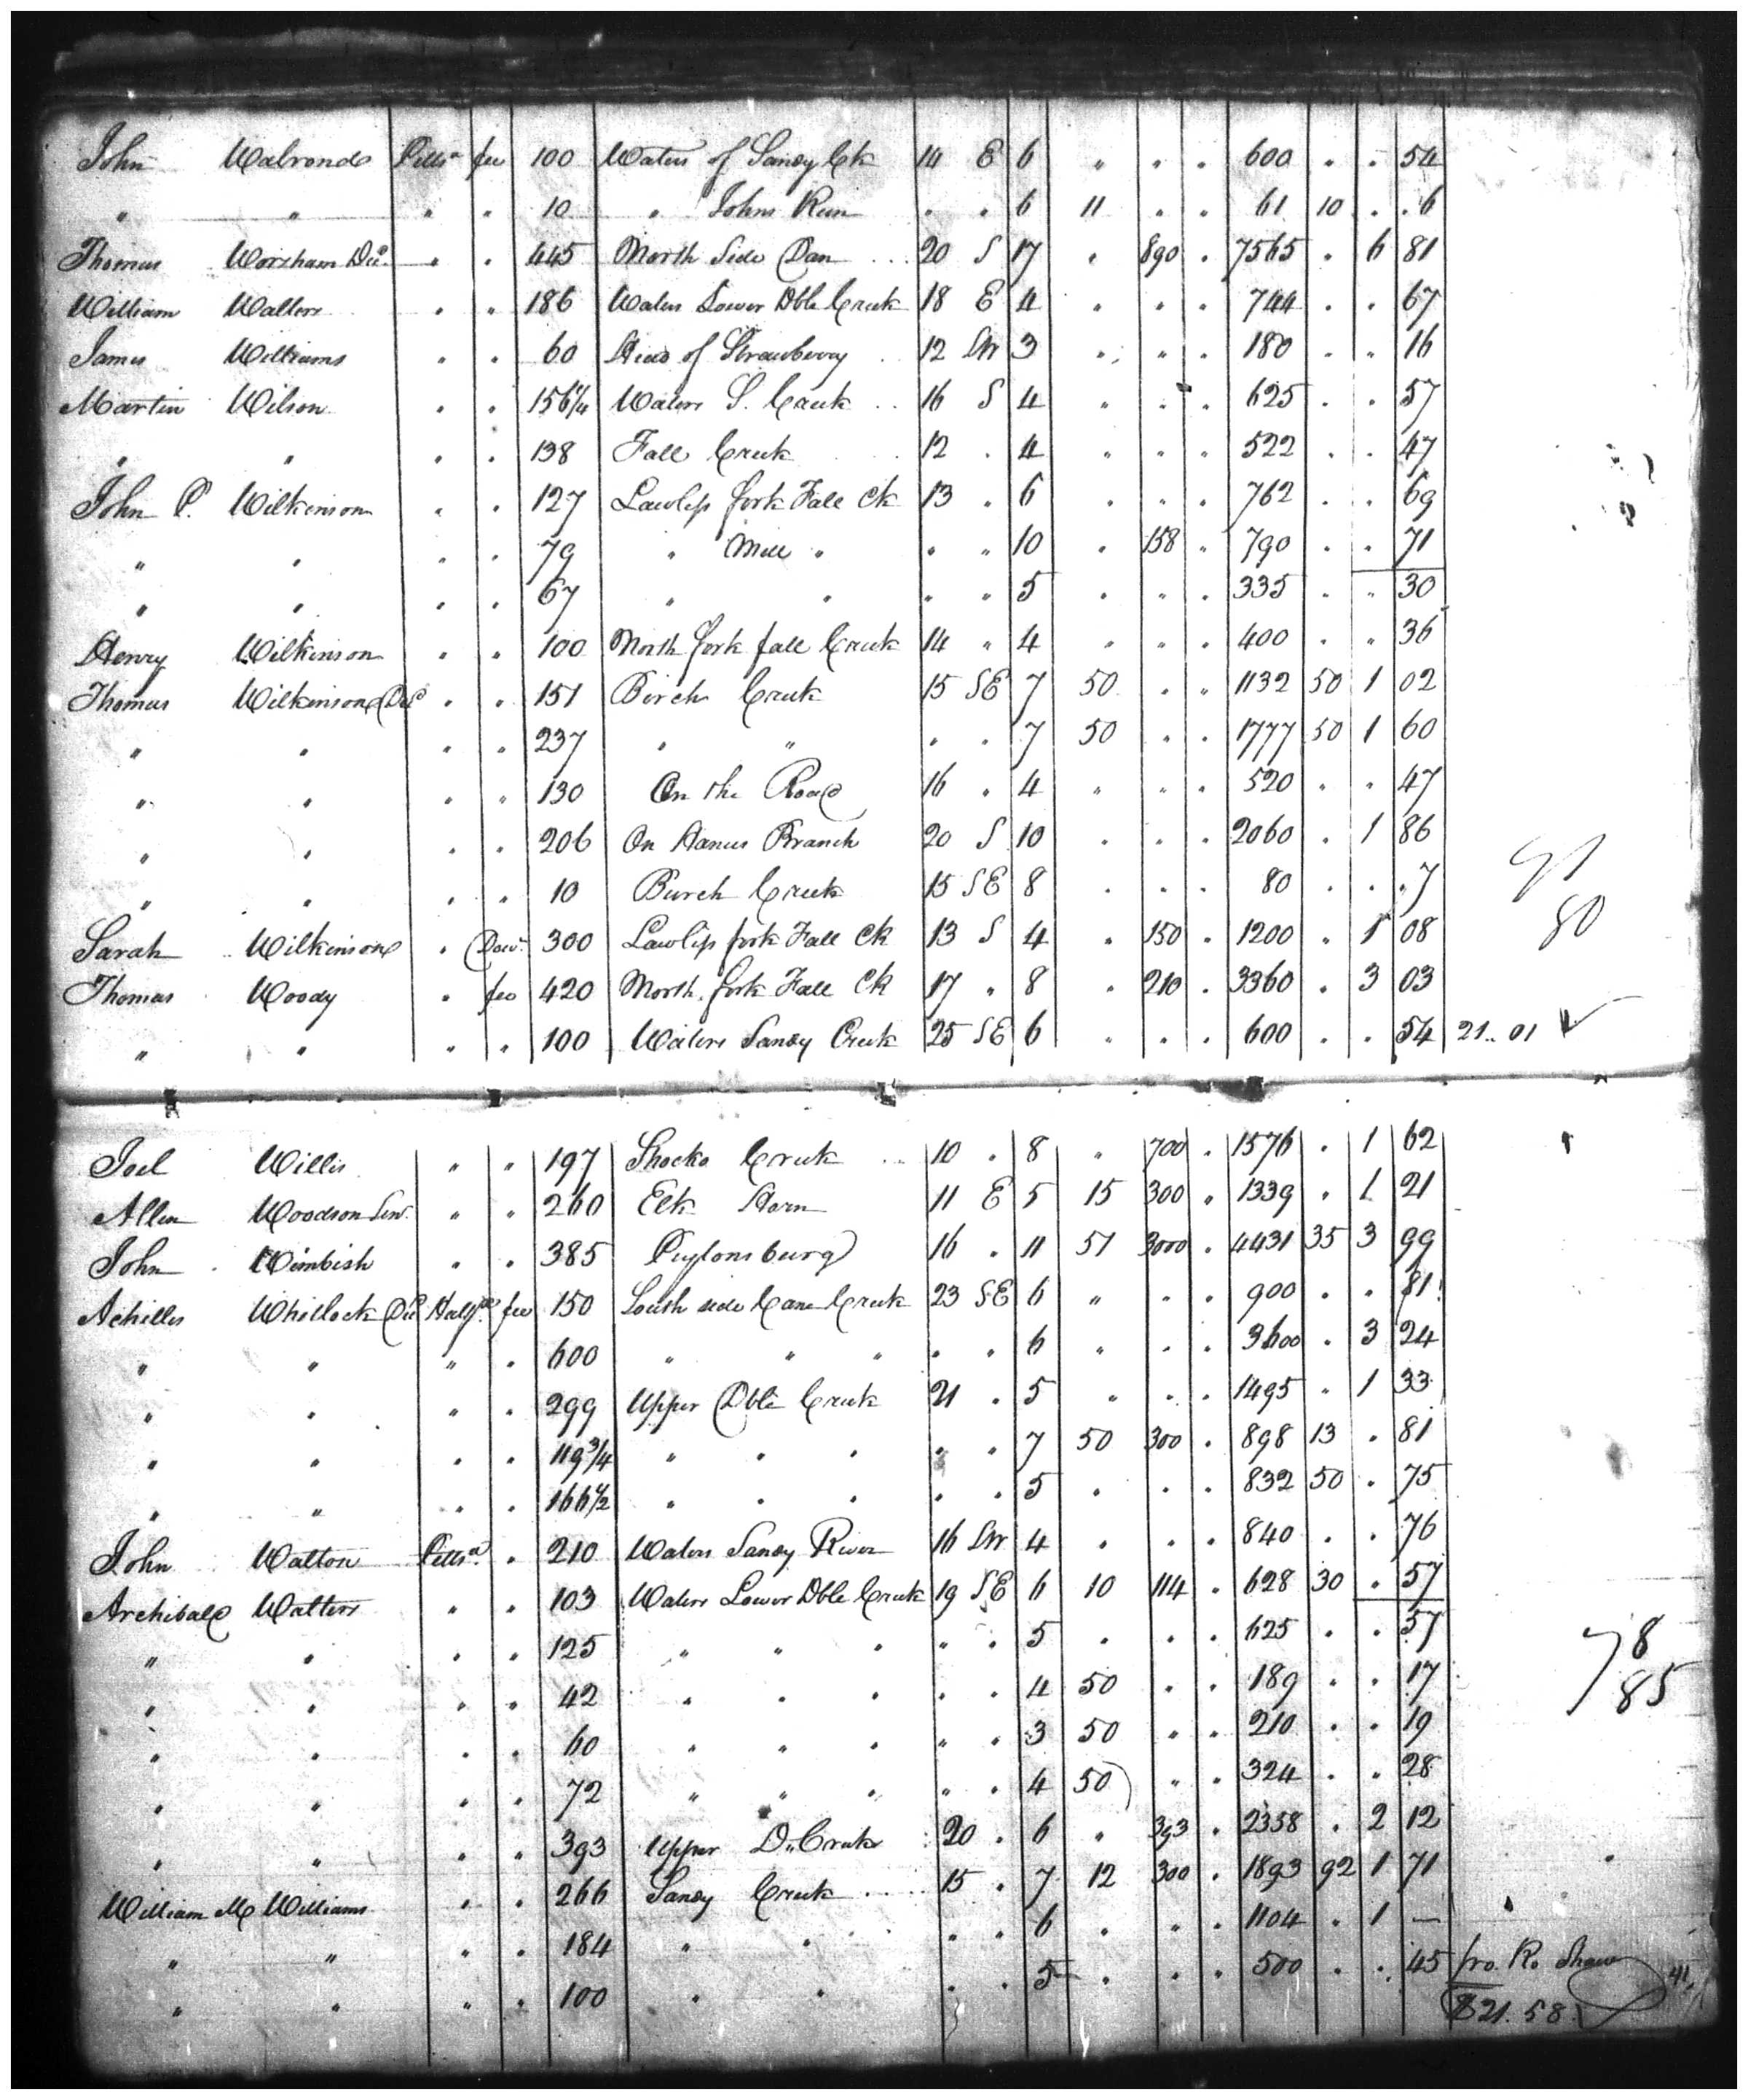 John Walrond Pittsa. fee 100 Waters of Sandy Ck 14 E 6 " " " 600 " " 54
" " " " 10 " Johns Run " " 6 11 " " 61 10 " " 6
Thomas Worsham Decd. " " 445 North Side Dan 20 S 17 " 890 " 7565 " 6 81
William Walters " " 186 Waters Lower Dble Creek 18 E 4 " " " 744 " " 67
James Williams " " 60 Head of Strawberry 12 SW 3 " " " 180 " " 16
Martin Wilson " " 156 1/4 Waters S. Creek 16 S 4 " " " 625 " " 57
" " " " 138 Fall Creek 12 " 4 " " " 522 " " 47
John P. Wilkinson " " 127 Lawlips fork Fall Ck 13 " 6 " " " 762 " " 69
" " " " 79 " Mill " " " 10 " 158 " 790 " " 71
" " " " 67 " " " " 5 " " " 335 " " 30
Henry Wilkinson " " 100 North fork fall Creek 14 " 4 " " " 400 " " 36
Thomas Wilkinson Decd " " 151 Birch Creek 15 SE 7 50 " " 1132 50 1 02
" " " " 237 " " " " 7 50 " " 1777 50 1 60
" " " " 130 On the Road 16 " 4 " " " 520 " " 47
" " " " 206 On Hanus Branch 20 S 10 " " " 2060 " 1 86
" " " " 10 Burch Creek 15 SE 8 " " " 80 " " 7
Sarah Wilkinson " Dow. 300 Lawlips fork Fall Ck 13 S 4 " 150 " 1200 " 1 08
Thomas Woody " fee 420 North fork Fall Ck 17 " 8 " 210 " 3360 " 3 03
" " " " 100 Waters Sandy Creek 25 SE 6 " " " 600 " " 54 21.. 01
91
80
Joel Willis " " 197 Shocko Creek 10 " 8 " 700 " 1576 " 1 62
Allen Woodson Senr. " " 260 Elk Horn 11 E 5 15 300 " 1339 " 1 21
John Wimbish " " 385 Peytonsburg 16 " 11 51 3000 " 4431 35 3 99
Achilles Whitlock Decd Halifx. fee 150 South side Cane Creek 23 SE 6 " " " 900 " " 81
" " " " 600 " " " " " 6 " " " 3600 " 3 24
" " " " 299 Upper Dble Creek 21 " 5 " " " 1495 " 1 33
" " " " 119 3/4 " " " " " 7 50 300 " 898 13 " 81
" " " " 166 1/2 " " " " " 5 " " " 832 50 " 75
John Walton Pittsa. " 210 Waters Sandy River 16 SW 4 " " " 840 " " 76
Archibald Walters " " 103 Waters Lower Dble Creek 19 SE 6 10 114 " 628 30 " 57
" " " " 125 " " " " " 5 " " " 625 " " 57
" " " " 42 " " " " " 4 50 " " 189 " " 17
" " " " 60 " " " " " 3 50 " " 210 " " 19
" " " " 72 " " " " " 4 50 " " 324 " " 28
" " " " 393 Upper D. Creek 20 " 6 " 393 " 2358 " 2 12
William M Williams " " 266 Sandy Creek 15 " 7 12 300 " 1893 92 1 71
" " " " 184 " " " " 6 " " " 1104 " 1 —
" " " " 100 " " " " 5 " " " 500 " " 45 pro. Ro Shaw
$21.58
78
85
41